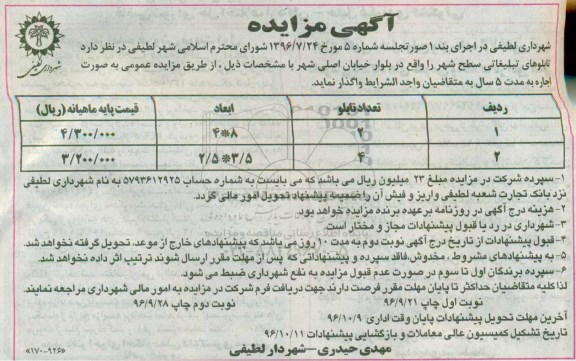 آگهی مزایده
شهرداری لطیفی
شهرداری لطیفی در اجرای بند ۱ صورتجلسه شماره ۵ مورخ ۱۳۹۶/۷/۲۴ شورای محترم اسلامی شهر لطیفی در نظر دارد
تابلوهای تبلیغاتی سطح شهر را واقع در بلوار خیابان اصلی شهر با مشخصات ذیل ، از طریق مزایده عمومی به صورت
اجاره به مدت ۵ سال به متقاضیان واجد الشرایط واگذار نماید.
ردیف تعداد تابلو ابعاد قیمت پایه ماهیانه (ریال)
۱ ۲ ۸*۴ ۴/۳۰۰/۰۰۰
۲ ۴ ۳/۵*۲/۵ ۳/۲۰۰/۰۰۰
۱-سپرده شرکت در مزایده مبلغ ۲۳ میلیون ریال می باشد که می بایست به شماره حساب ۵۷۹۳۶۱۲۹۲۵ به نام شهرداری لطیفی
نزد بانک تجارت شعبه لطیفی واریز و فیش آن را ضمیمه پیشنهاد تحویل امور مالی گردد.
۲-هزینه درج آگهی در روزنامه بر عهده برنده مزایده خواهد بود.
۳-شهرداری در رد یا قبول پیشنهادات مجاز و مختار است.
۴-قبول پیشنهادات از تاریخ درج آگهی نوبت دوم به مدت ۱۰ روز می باشد که پیشنهادهای خارج از موعد، تحویل گرفته نخواهد شد.
۵- به پیشنهادهای مشروط ، مخدوش، فاقد سپرده و پیشنهاداتی که پس از مهلت مقرر ارسال شوند ترتیب اثر داده نخواهد شد.
۶-سپرده برندگان اول تا سوم در صورت عدم قبول مزایده به نفع شهرداری ضبط می شود.
لذا کلیه متقاضیان حداکثر تا پایان مهلت مقرر فرصت دارند جهت دریافت فرم شرکت در مزایده به امور مالی شهرداری مراجعه نمایند.
نوبت اول چاپ ۹۶/۹/۲۱ نوبت دوم چاپ ۹۶/۹/۲۸
آخرین مهلت تحویل پیشنهادات پایان وقت اداری ۹۶/۱۰/۹
تاریخ تشکیل کمیسیون عالی معاملات و بازگشایی پیشنهادات ۹۶/۱۰/۱۱
مهدی حیدری-شهردار لطیفی
«۱۷۰-۹۲۶»